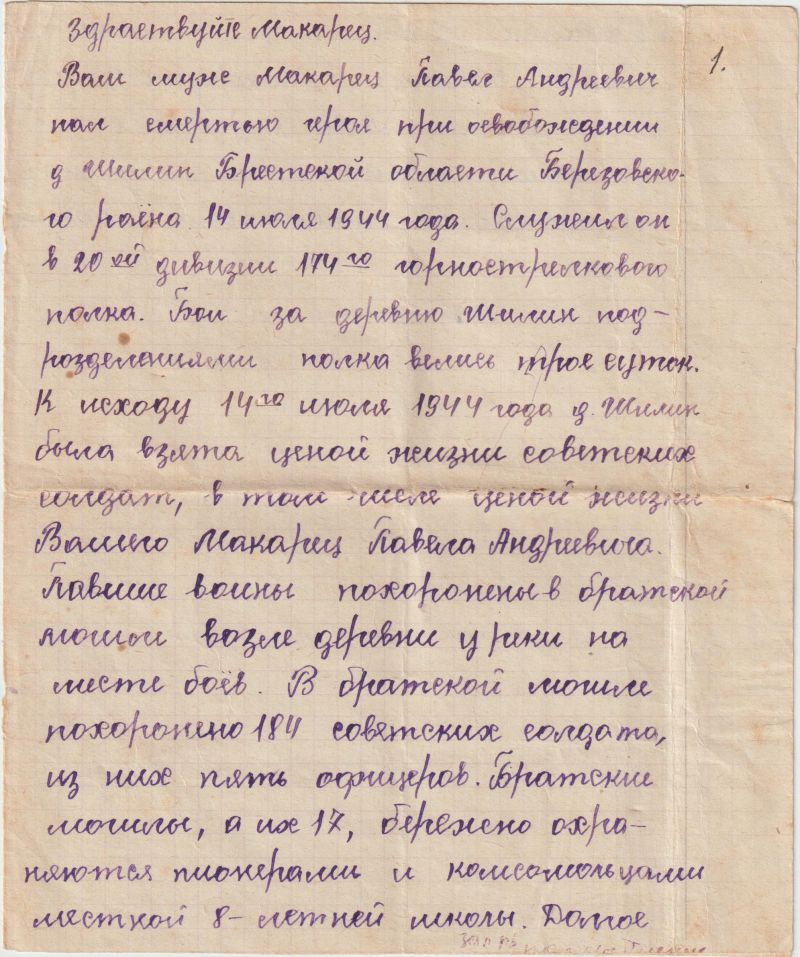 Здраствуйте Макарец.
1.
Ваш муж Макарец Павел Андреевич
пал смертью героя при освобождении
д Шилин Брестской области Березовско-
го раёна 14 июля 1944 года. Служил он
в 20ой дивизии 174го горнострелкового
полка. Бои за деревню Шилин под-
розделаниями полка велись трое суток.
К исходу 14го июля 1944 года д. Шилин
была взята ценой жизни советских
солдат, в том числе ценой жизни
Вашего Макарец Павела Андреевича.
Павшие воины похоронены в братской
возле деревни у реки на
месте боёв. В братской могиле
похоронено 184 советских солдата,
из них пять офицеров. Братские
могилы, а их 17, бережено охра-
няются пионерами и комсомольцами
местной 8-летней школы. Долгое